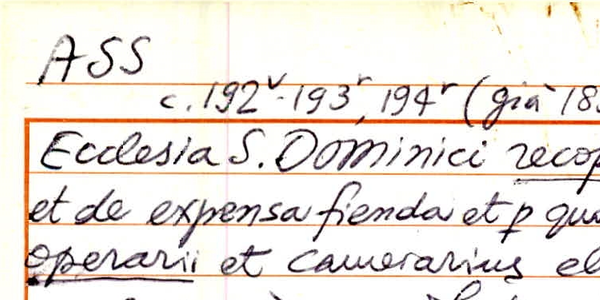 ASS
c. 192ᵛ-193ʳ, 194ʳ (già 18
Ecclesia S. Dominici recop
et de expensa fienda et p qua
operarii et camerarius el